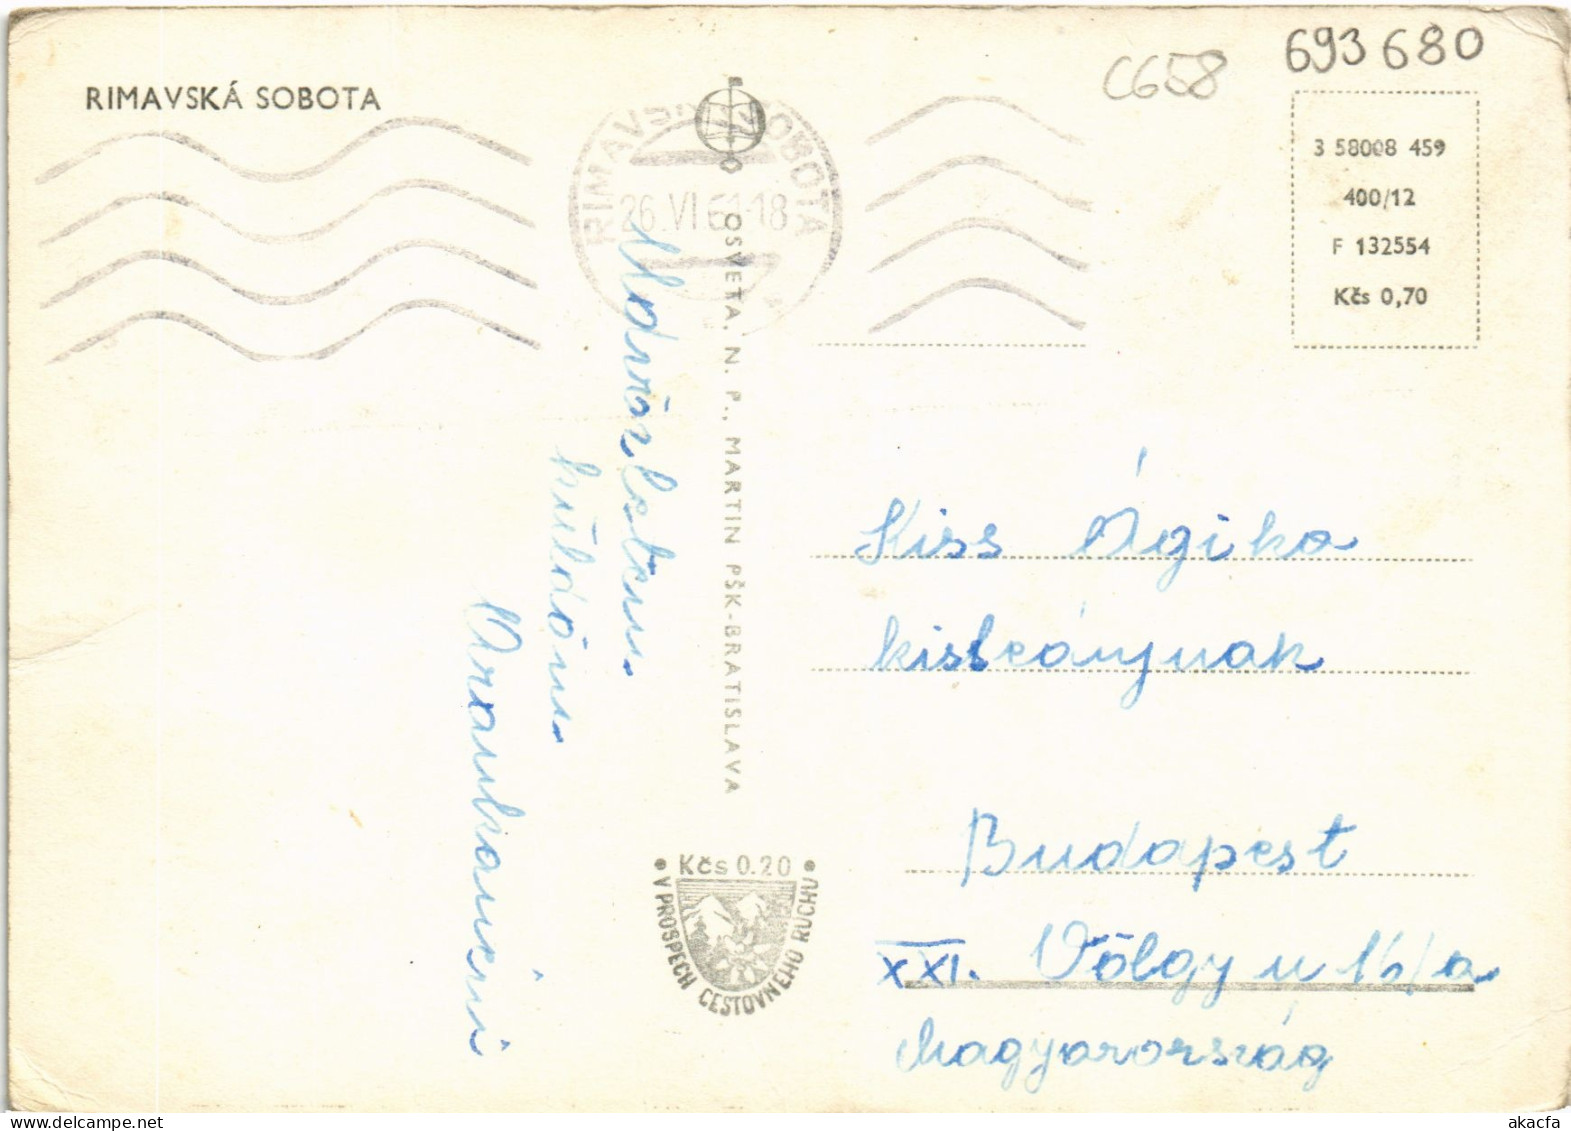 RIMAVSKÁ SOBOTA
C658
693 680
RIMAVSKÁ SOBOTA
26.VI 61-18
3 58008 459
400/12
F 132554
Kčs 0,70
OSVETA, N. P., MARTIN PŠK-BRATISLAVA
küldöm
Kiss Ágika
kisleánynak
Budapest
XXI. Völgy u 16/a
Magyarország
Kčs 0.20
V PROSPECH CESTOVNÉHO RUCHU
akacfa